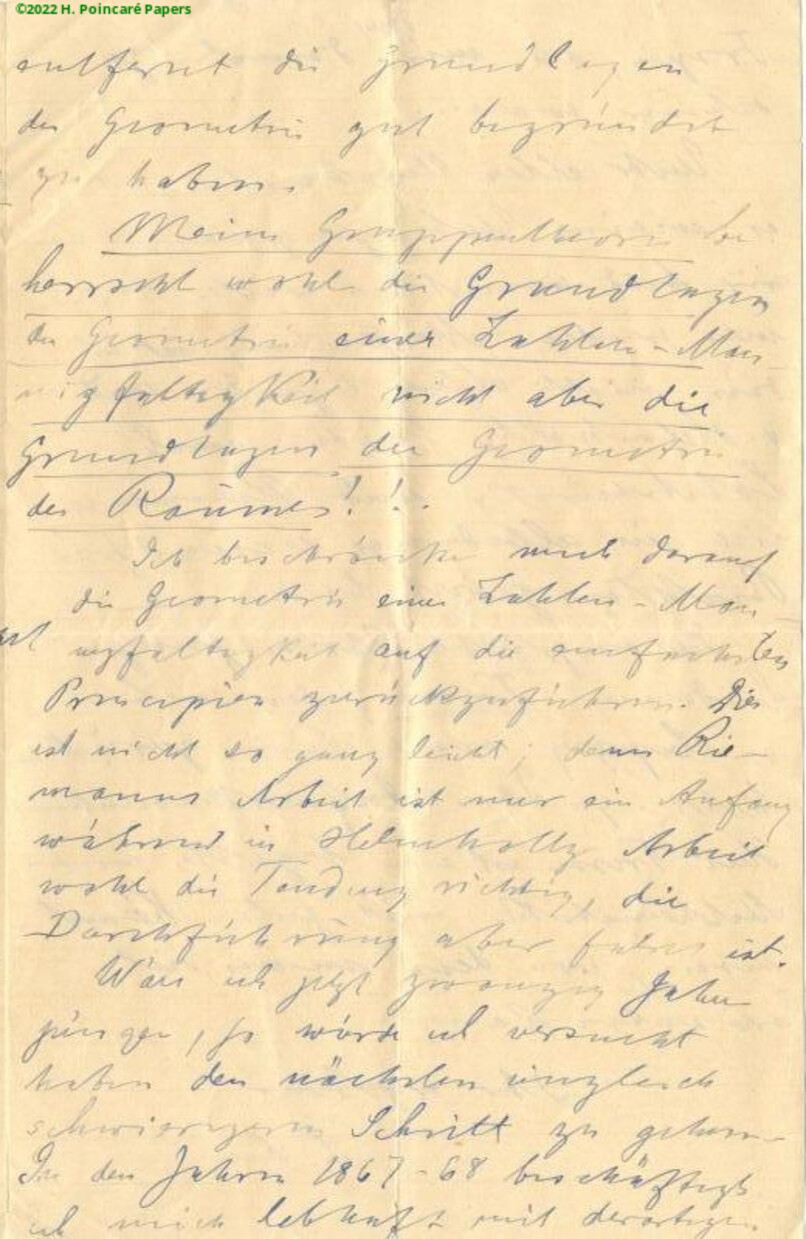 ©2022 H. Poincaré Papers
entfernt die Grundlagen
der Geometrie gut begründet
zu haben.
Meine Gruppentheorie be
herrscht wohl die Grundlagen
der Geometrie einer Zahlen-Man
nigfaltigkeit nicht aber die
Grundlagen der Geometrie
des Raumes!!.
Ich beschränke mich darauf
die Geometrie einer Zahlen-Man
nigfaltigkeit auf die einfachsten
Principien zurückzuführen. Dies
ist nicht so ganz leicht; denn Rie-
manns Arbeit ist nur ein Anfang
während in Helmholtz Arbeit
wohl die Tendenz richtig, die
Durchführung aber falsch ist.
Wäre ich jetzt zwanzig Jahre
jünger, so würde ich versucht
haben den nächsten ungleich
schwierigeren Schritt zu gehen.
In den Jahren 1867-68 beschäftigte
ich mich lebhaft mit derartigen